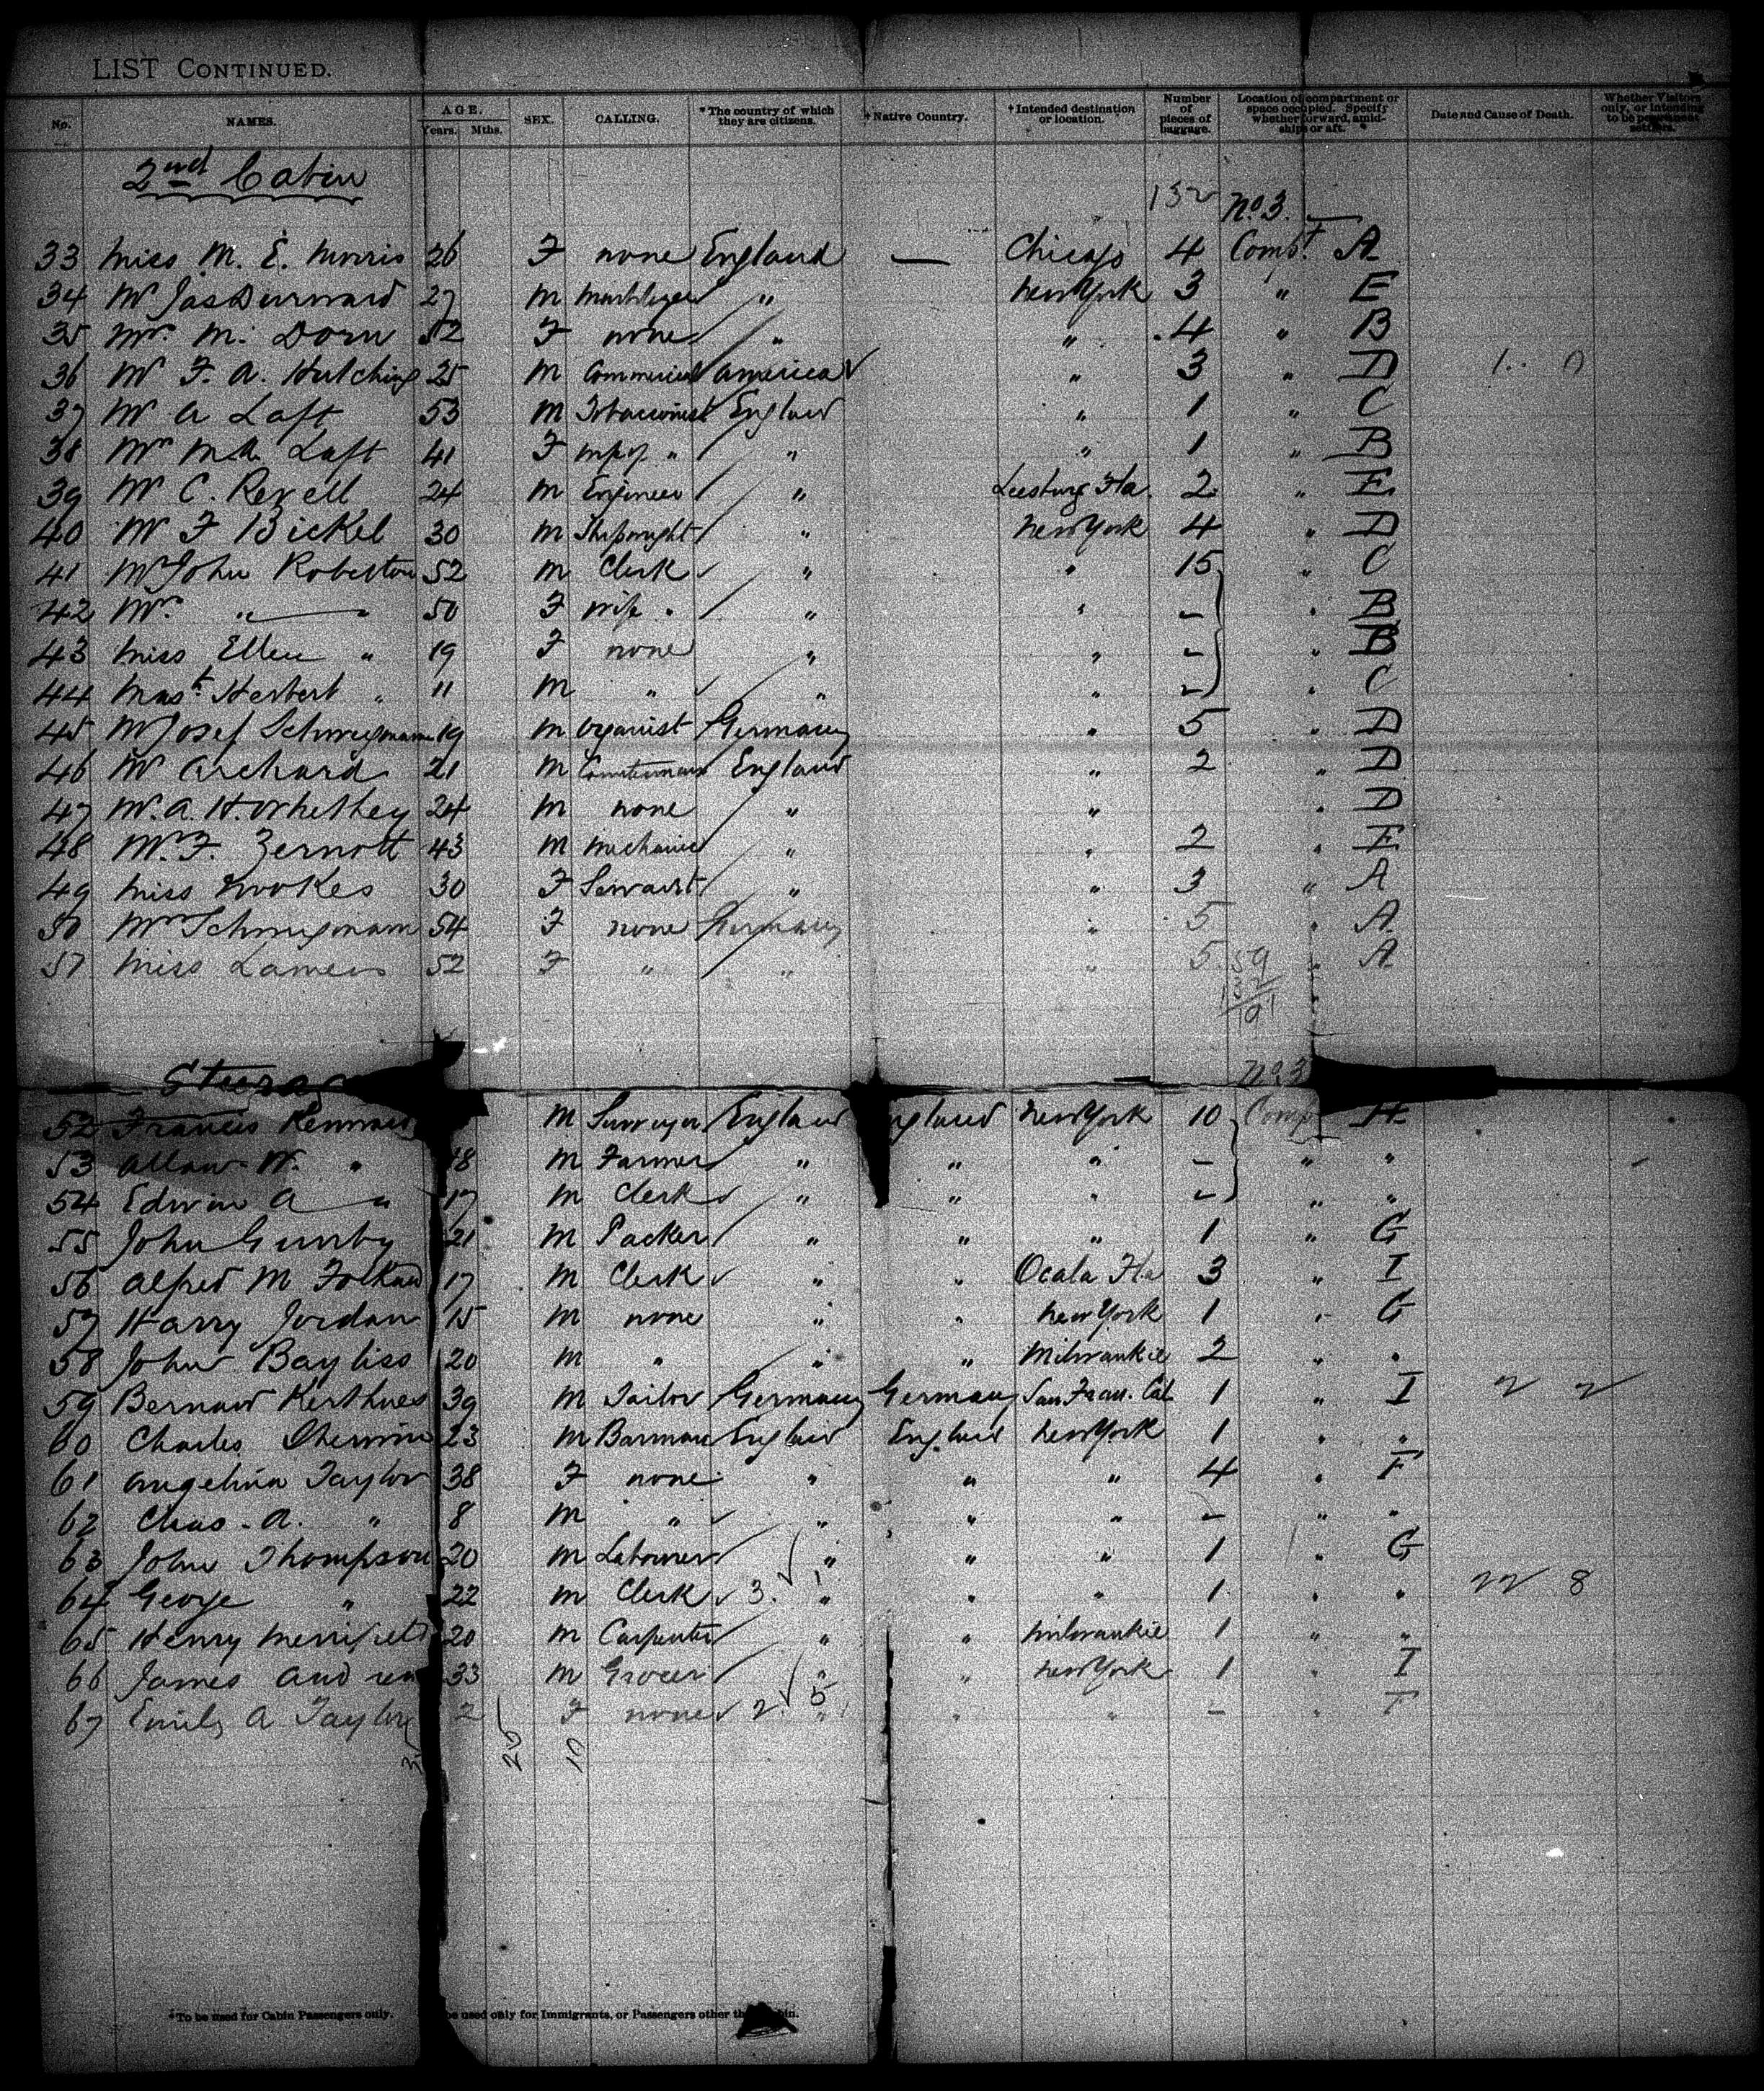 LIST CONTINUED.
No. NAMES. AGE. Years. Mths. SEX. CALLING. *The country of which they are citizens. †Native Country. †Intended destination or location. Number of pieces of baggage. Location of compartment or space occupied. Specify whether forward, amidships or aft. Date and Cause of Death. Whether Visitors only, or intending to be permanent settlers.
2nd Cabin
152 No. 3.
33 Miss M. E. Morris 26 F none England — Chicago 4 Compt. A
34 Mr Jas Durward 27 M " New York 3 " E
35 Mrs M. Dorn 52 F none " " 4 " B
36 Mr F. A. Hutchings 25 M Commercial America " 3 " D
37 Mr A Laft 53 M Tobacconist England " 1 " C
38 Mrs M.A. Laft 41 F wife of " " " 1 " B
39 Mr C. Revell 24 M Engineer " Leesburg Fla. 2 " E
40 Mr F Bickel 30 M Shipwright " New York 4 " D
41 Mr John Roberton 52 M Clerk " " 15 " C
42 Mrs " 50 F wife " " " - " B
43 Miss Ellen " 19 F none " " - " B
44 Mast. Herbert " 11 M " " " - " C
45 Mr Josef 19 M Organist Germany " 5 " D
46 Mr Archard 21 M England " 2 " D
47 Mr. A. H. Whethey 24 M none " " " D
48 Mr. F. Zernott 43 M Mechanic " " 2 " E
49 Miss Nookes 30 F Servant " " 3 " A
50 Mrs 54 F none Germany " 5 " A
51 Miss Lamers 52 F " " " 5 " A
59
191
Steerage
No. 3
52 Francis M Surveyor England England New York 10 Comp H
53 Allan W. " 18 M Farmer " " " - " "
54 Edwin A " 17 M Clerk " " " - " "
55 John Gunby 21 M Packer " " " 1 " G
56 Alfred M Folkard 17 M Clerk " " Ocala Fla 3 " I
57 Harry Jordan 15 M none " " New York 1 " G
58 John Bayliss 20 M " " " Milwaukie 2 " "
59 Bernard 39 M Tailor Germany Germany San Fran. Cal 1 " I
60 Charles Sherwin 23 M Barman England England New York 1 " "
61 Angelina Taylor 38 F none " " " 4 " F
62 Chas. A. " 8 M " " " " - " "
63 John Thompson 20 M Labourer " " " 1 " G
64 George " 22 M Clerk 3. " " " 1 " "
65 Henry Merrifield 20 M Carpenter " " Milwaukie 1 " "
66 James 33 M Grocer " " New York 1 " I
67 Emily A Taylor 2 F none 2 5 " " " - " F
20 10
*To be used for Cabin Passengers only. be used only for Immigrants, or Passengers other